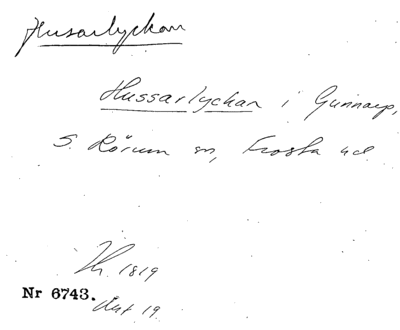 Husarlyckan
Hussarlyckan i Gunnarp,
S. Rörum sn, Frosta hd
1819
Nr 6743.
19.